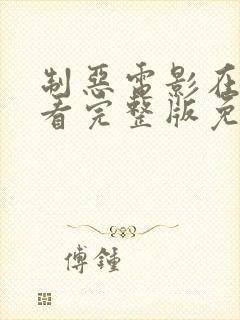 制惡電影在
看完整版免
傅鍾